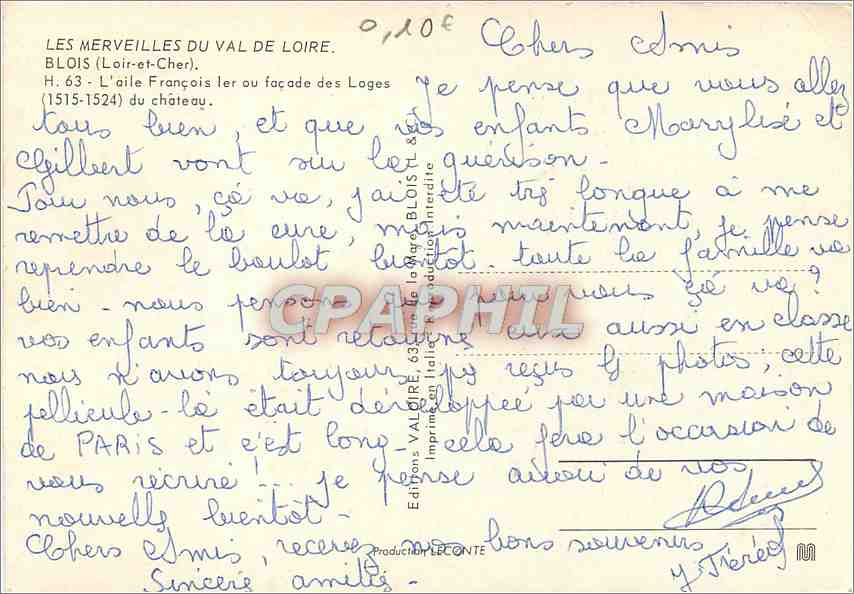 0,10€
LES MERVEILLES DU VAL DE LOIRE.
BLOIS (Loir-et-Cher).
H. 63 - L'aile François Ier ou façade des Loges
(1515-1524) du château.
Chers Amis
Je pense que vous allez
tous bien, et que vos enfants Marylise et
Gilbert vont sur la guérison -
Pour nous, çà va, j'ai été très longue à me
remettre de la cure, mais maintenant, je pense
reprendre le boulot bientôt - toute la famille va
bien - nous pensons que pour vous çà va ?
vos enfants sont retournés eux aussi en classe
nous n'avons toujours pas reçus les photos, cette
pellicule-là était développée par une maison
de PARIS et c'est long - cela fera l'occasion de
vous récrire !... je pense avoir de vos
nouvelles bientôt -
Chers Amis, recevez nos bons souvenirs
Sincères amitiés -
Editions VALOIRE, 63, rue de la Mare, BLOIS
Imprimé en Italie - Reproduction interdite
CPAPHIL
Production LECONTE